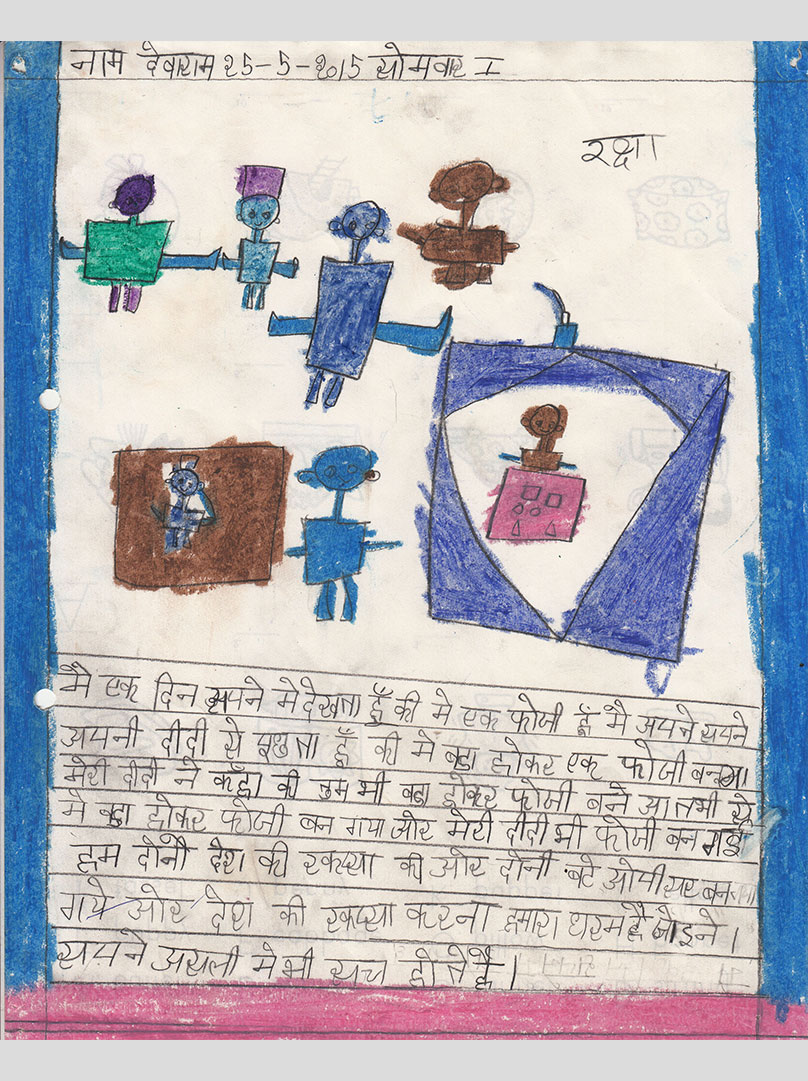 नाम देवाराम 25-5-2015 सोमवार I
रक्षा
मै एक दिन सपने मे देखता हूँ की मे एक फोजी हूँ मै अपने सपने
अपनी दीदी से पुछता हूँ की मे बढा होकर एक फोजी बनुगा
मेरी दीदी ने कहाँ की तुम भी बढा होकर फोजी बने आतभी से
मे बढा होकर फोजी बन गया ओर मेरी दीदी भी फोजी बन गई
हम दोनो देश की रकष्या की ओर दोनो बढे ओपीसर बन
गये ओर देश की रकष्या करना हमारा धरम है जोइने।
सपने असली मे भी सच होते है।